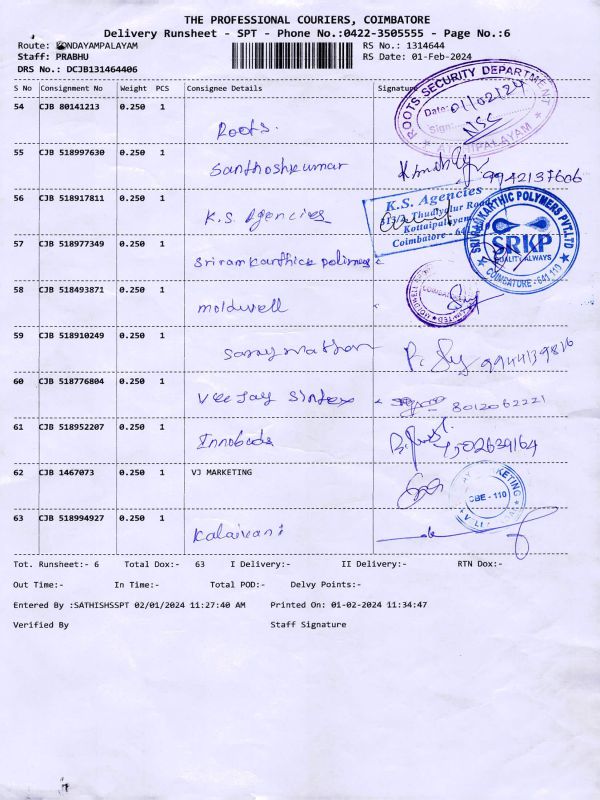 THE PROFESSIONAL COURIERS, COIMBATORE
Delivery Runsheet - SPT - Phone No.:0422-3505555 - Page No.:6
Route: KONDAYAMPALAYAM
RS No.: 1314644
Staff: PRABHU
RS Date: 01-Feb-2024
DRS No.: DCJB131464406
S No Consignment No Weight PCS Consignee Details Signature
54 CJB 80141213 0.250 1 Roots.
ROOTS SECURITY DEPARTMENT
Date: 01/02/24
Sign:
NSC
55 CJB 518997630 0.250 1 Santhoshkumar
9942137606
56 CJB 518917811 0.250 1 K.S. Agencies
K.S. Agencies
Thudiyalur Road
Kottaipalayam
Coimbatore - 641 110
57 CJB 518977349 0.250 1 Sriramkarthick polimers
SRIRAMKARTHIC POLYMERS PVT.LTD
SRKP
QUALITY ALWAYS
COIMBATORE - 641 110
58 CJB 518493871 0.250 1 moldwell
59 CJB 518910249 0.250 1
9944139816
60 CJB 518776804 0.250 1 Veejay Sintex
8012062221
61 CJB 518952207 0.250 1
62 CJB 1467073 0.250 1 VJ MARKETING
CBE - 110
63 CJB 518994927 0.250 1 Kalaivani
Tot. Runsheet:- 6 Total Dox:- 63 I Delivery:- II Delivery:- RTN Dox:-
Out Time:- In Time:- Total POD:- Delvy Points:-
Entered By :SATHISHSSPT 02/01/2024 11:27:40 AM Printed On: 01-02-2024 11:34:47
Verified By Staff Signature